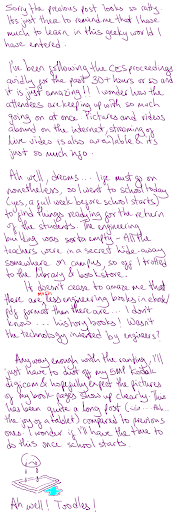 Sorry the previous post looks so ratty.
It's just there to remind me that I have
much to learn in this geeky world I
have entered.
I've been following the CES proceedings
avidly for the past 30+ hours or so and
it is just amazing!! I wonder how the
attendees are keeping up with so much
going on at once. Pictures and videos
abound on the internet, streaming or
live video is also available & it's
just so much info.
Ah well, dreams.... Life must go on
nonetheless, so I went to school today
(yes, a full week before school starts)
to find things readying for the return
of the students. The engineering
building was sorta empty - all the
teachers were in a secret hide-away
somewhere on campus so off I trotted
to the library & bookstore.
It doesn't cease to amaze me that
there are less engineering books in ebook/
pdf format than there are.... I don't
know .... history books! Wasn't
the technology invented by engineers?
Anyway, enough with the ranting, I'll
just have to dust off my 5MP Kodak
digicam & hopefully expect the pictures
of my book pages show up clearly. This
has been quite a long post (... Ahh...
the joy of a tablet) compared to previous
ones. I wonder if I'll have the time to
do this once school starts.
Ah well! Toodles!